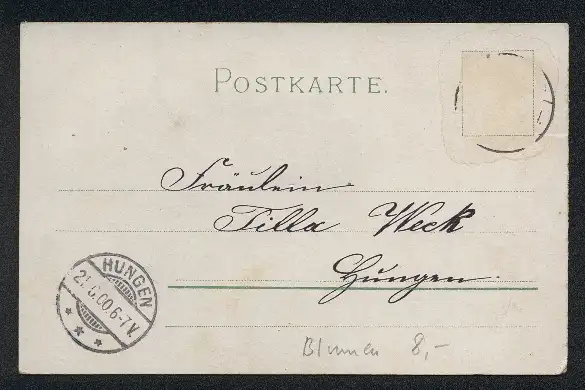 POSTKARTE.
Fräulein
Tilla Weck
Hungen.
HUNGEN
21.6.00.6-7V.
Blumen 8,-